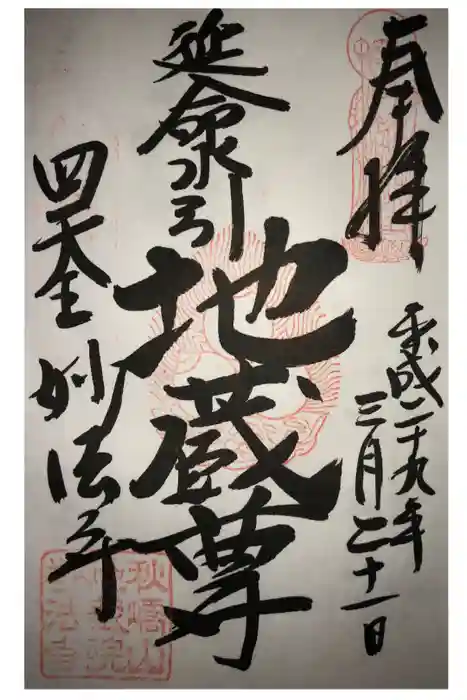 奉拝
平成二十九年
三月二十一日
延命水引
地蔵尊
四天王
妙法寺